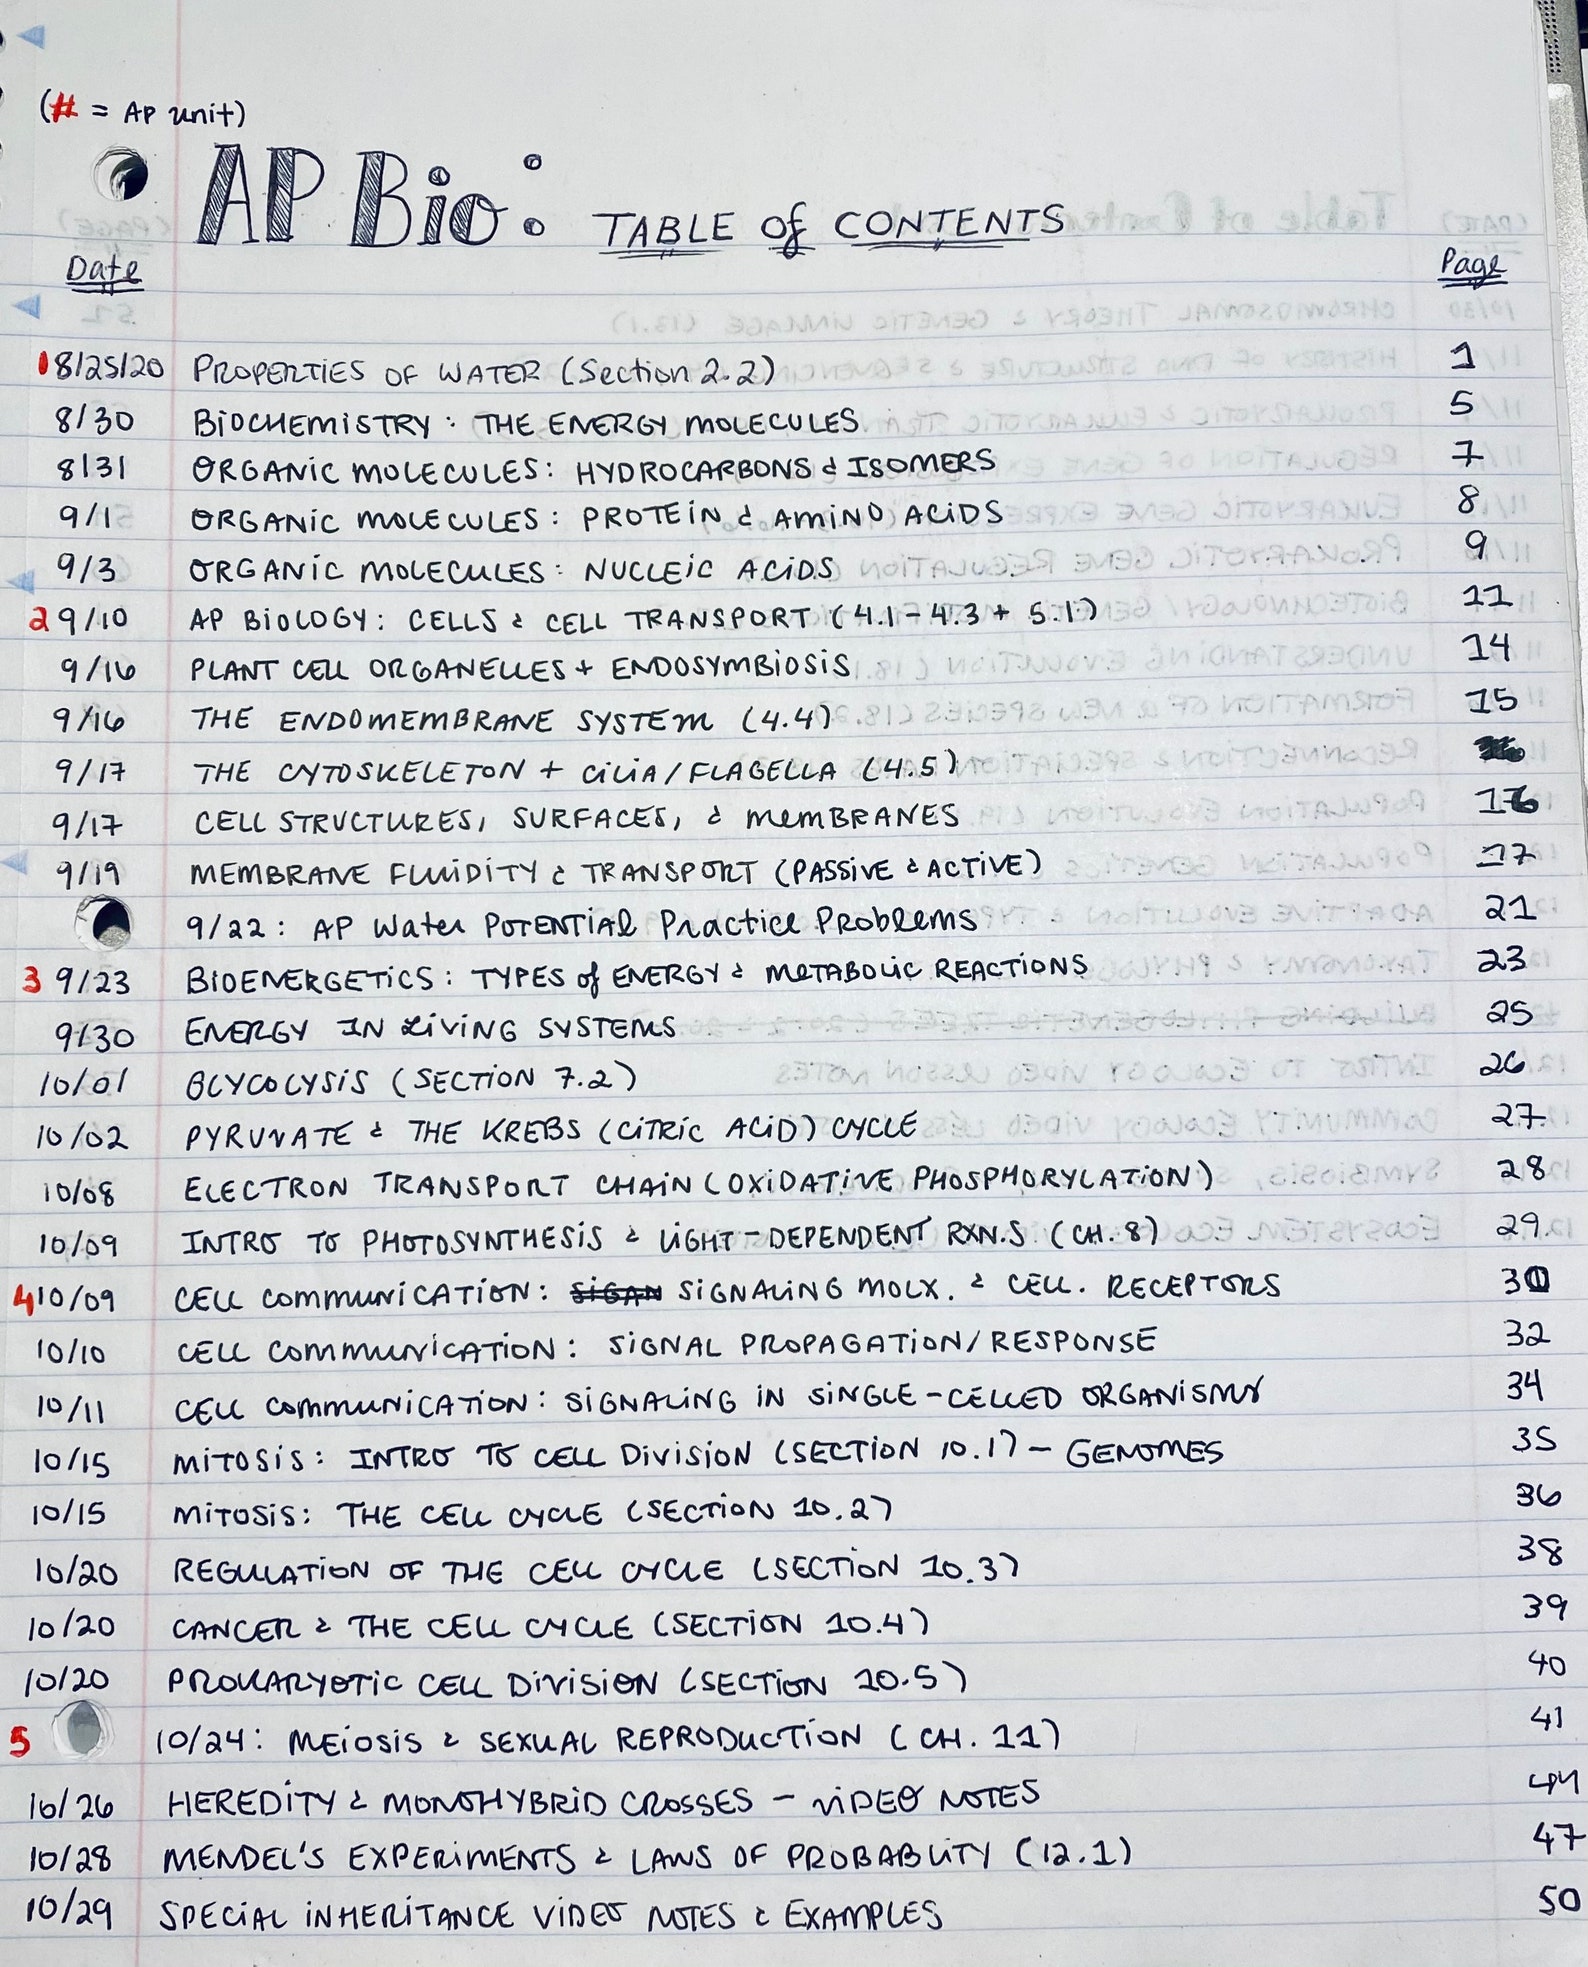 (# = AP unit)
AP Bio: TABLE of CONTENTS
Date Page
1 8/25/20 PROPERTIES OF WATER (Section 2.2) 1
8/30 BIOCHEMISTRY: THE ENERGY MOLECULES 5
8/31 ORGANIC MOLECULES: HYDROCARBONS & ISOMERS 7
9/1 ORGANIC MOLECULES: PROTEIN & AMINO ACIDS 8
9/3 ORGANIC MOLECULES: NUCLEIC ACIDS 9
2 9/10 AP BIOLOGY: CELLS & CELL TRANSPORT (4.1-4.3 + 5.1) 11
9/16 PLANT CELL ORGANELLES + ENDOSYMBIOSIS 14
9/16 THE ENDOMEMBRANE SYSTEM (4.4) 15
9/17 THE CYTOSKELETON + CILIA/FLAGELLA (4.5)
9/17 CELL STRUCTURES, SURFACES, & MEMBRANES 16
9/19 MEMBRANE FLUIDITY & TRANSPORT (PASSIVE & ACTIVE) 17
9/22: AP Water POTENTIAL Practice Problems 21
3 9/23 BIOENERGETICS: TYPES of ENERGY & METABOLIC REACTIONS 23
9/30 ENERGY IN LIVING SYSTEMS 25
10/01 GLYCOLYSIS (SECTION 7.2) 26
10/02 PYRUVATE & THE KREBS (CITRIC ACID) CYCLE 27
10/08 ELECTRON TRANSPORT CHAIN (OXIDATIVE PHOSPHORYLATION) 28
10/09 INTRO TO PHOTOSYNTHESIS & LIGHT-DEPENDENT RXN.S (CH. 8) 29
4 10/09 CELL COMMUNICATION: SIGAN SIGNALING MOLX. & CELL. RECEPTORS 30
10/10 CELL COMMUNICATION: SIGNAL PROPAGATION/RESPONSE 32
10/11 CELL COMMUNICATION: SIGNALING IN SINGLE-CELLED ORGANISMS 34
10/15 MITOSIS: INTRO TO CELL DIVISION (SECTION 10.1) - GENOMES 35
10/15 MITOSIS: THE CELL CYCLE (SECTION 10.2) 36
10/20 REGULATION OF THE CELL CYCLE (SECTION 10.3) 38
10/20 CANCER & THE CELL CYCLE (SECTION 10.4) 39
10/20 PROKARYOTIC CELL DIVISION (SECTION 10.5) 40
5 10/24: MEIOSIS & SEXUAL REPRODUCTION (CH. 11) 41
10/26 HEREDITY & MONOHYBRID CROSSES - VIDEO NOTES 44
10/28 MENDEL'S EXPERIMENTS & LAWS OF PROBABLITY (12.1) 47
10/29 SPECIAL INHERITANCE VIDEO NOTES & EXAMPLES 50